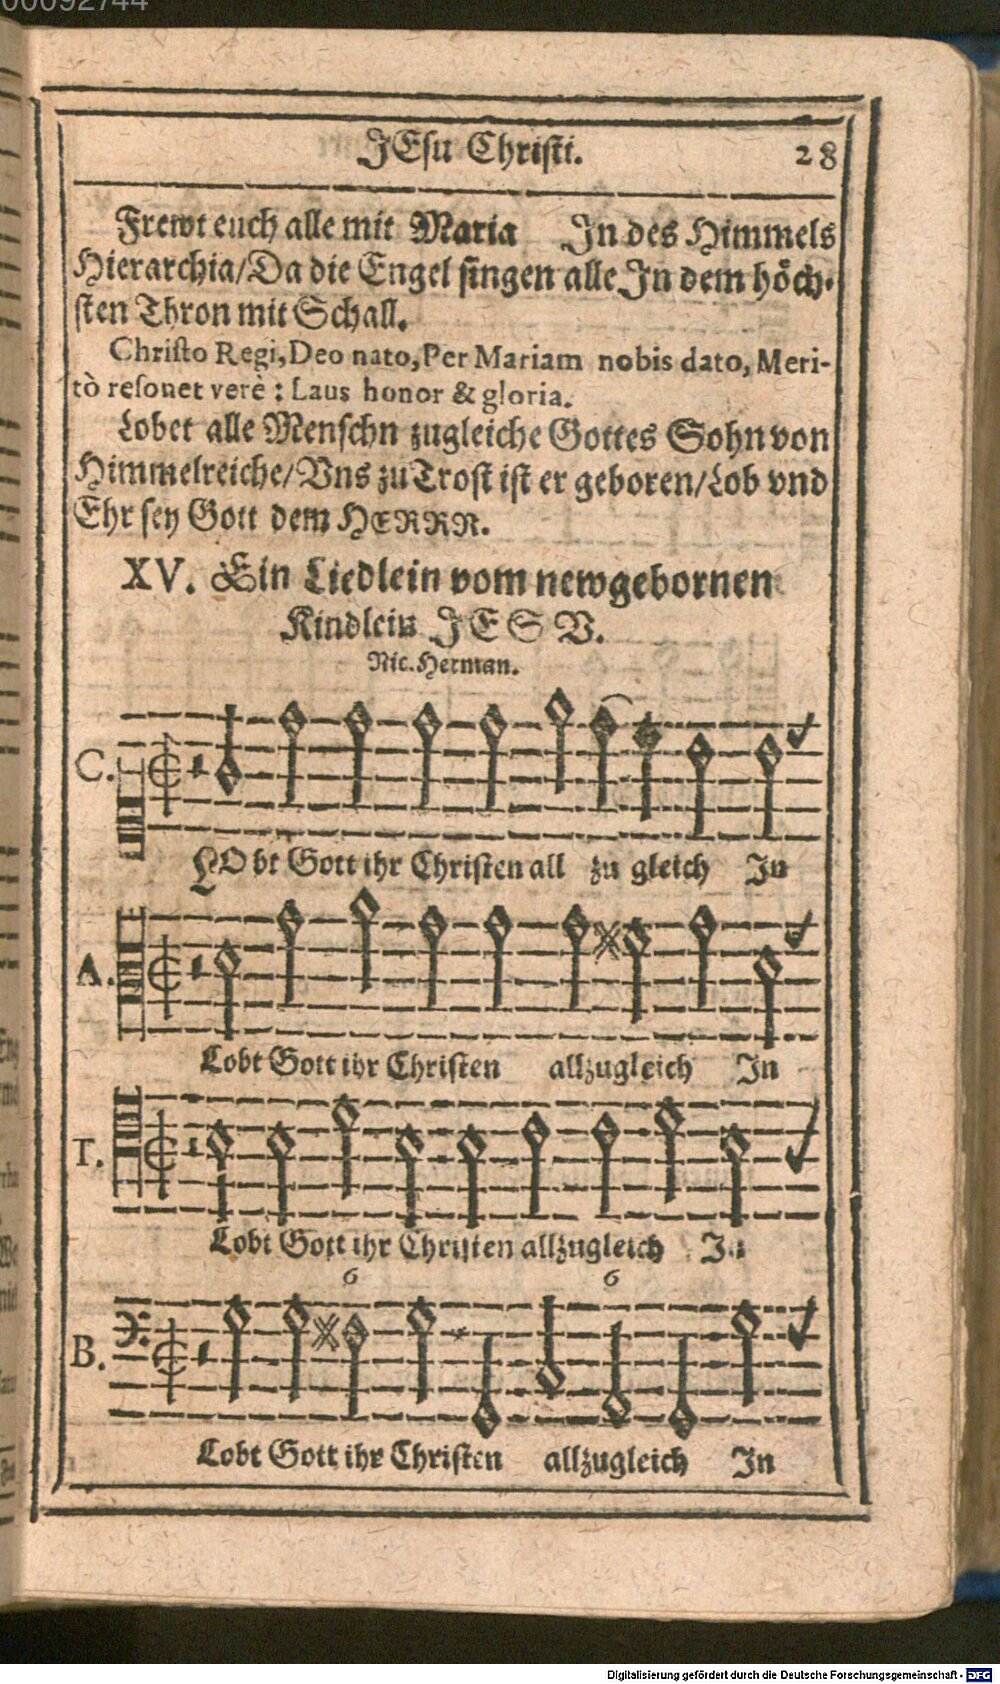 00092744
JEsu Christi. 28
Frewt euch alle mit Maria In des Himmels
Hierarchia/Da die Engel singen alle In dem höch-
sten Thron mit Schall.
Christo Regi, Deo nato, Per Mariam nobis dato, Meri-
tò resonet verè: Laus honor & gloria.
Lobet alle Menschn zugleiche Gottes Sohn von
Himmelreiche/Vns zu Trost ist er geboren/Lob vnd
Ehr sey Gott dem HERRN.
XV. Ein Liedlein vom newgebornen
Kindlein JESV.
Nic. Herman.
C.
LObt Gott ihr Christen all zu gleich In
A.
Lobt Gott ihr Christen allzugleich In
T.
Lobt Gott ihr Christen allzugleich In
6 6
B.
Lobt Gott ihr Christen allzugleich In
Digitalisierung gefördert durch die Deutsche Forschungsgemeinschaft - DFG